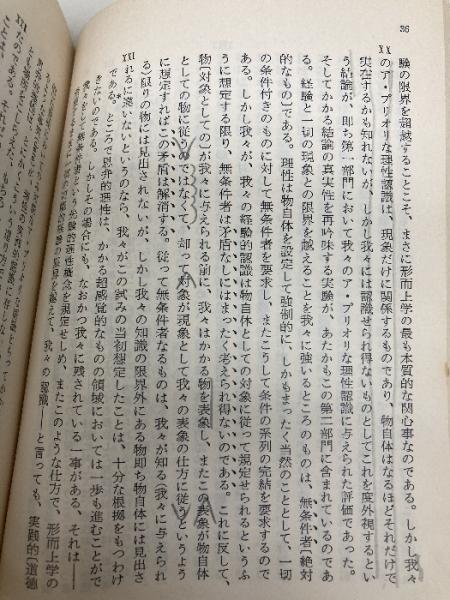 36
験の限界を超越することこそ、まさに形而上学の最も本質的な関心事なのである。しかし我々
XX
のア・プリオリな理性認識は、現象だけに関係するものであり、物自体はなるほどそれだけで
実在するかも知れないが、しかし我々には認識せられ得ないものとしてこれを度外視するとい
う結論が、即ち第一部門において我々のア・プリオリな理性認識に与えられた評価であった。
そしてかかる結論の真実性を再吟味する実験が、あたかもこの第二部門に含まれているのであ
る。経験と一切の現象との限界を越えることを我々に強いるところのものは、無条件者〔絶対
的なもの〕である。理性は物自体を設定して強制的に、しかもまったく当然のこととして、一切
の条件付きのものに対して無条件者を要求し、またこうして条件の系列の完結を要求するので
ある。しかし我々が、我々の経験的認識は物自体としての対象に従って規定せられるというふ
うに想定する限り、無条件者は矛盾なしにはまったく考えられ得ないのである。これに反して、
物〔対象としての〕が我々に与えられる前に、我々はかかる物を表象し、またこの表象が物自体
としての物に従うのではなくて、却って対象が現象として我々の表象の仕方に従うというよう
に想定すればこの矛盾は解消する。従って無条件者なるものは、我々が知る(我々に与えられ
る)限りの物には見出されないが、しかし我々の知識の限界外にある物即ち物自体には見出さ
XXI
れるに違いないというのなら、我々がこの試みの当初想定したことは、十分な根拠をもつわけ
である。ところで思弁的理性は、かかる超感性的なものの領域においては一歩も進むことがで
きないのである。しかしその場合にも、なおかつ我々に残されている一事がある、それは――
験の限界を越えて、我々の認識――と言っても、実践的〔道徳
XXII